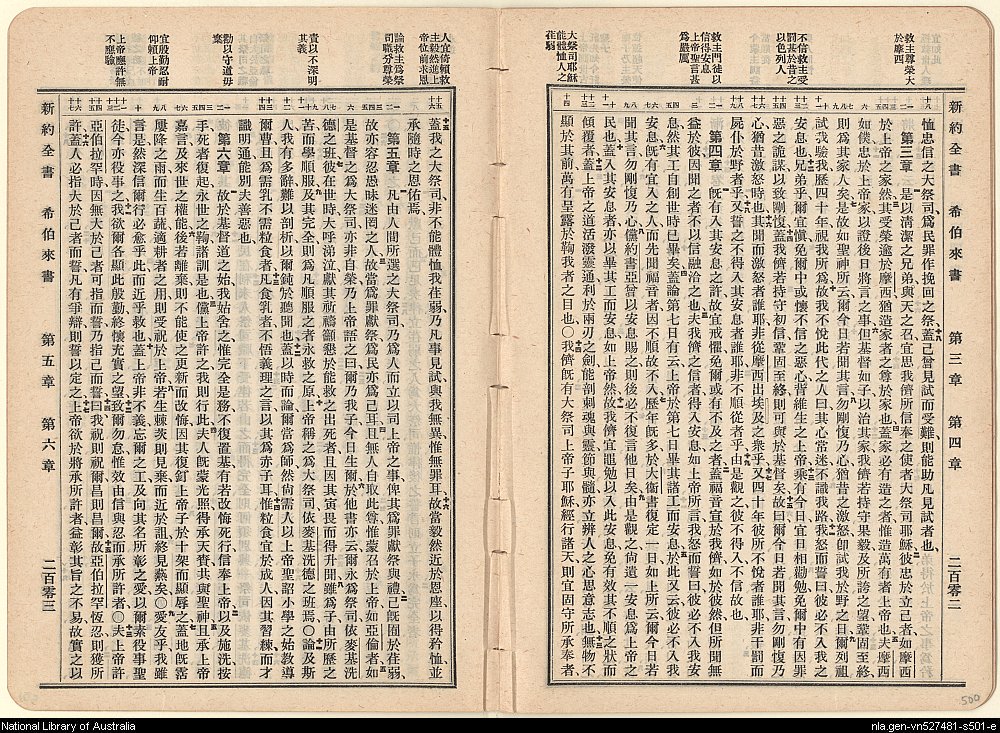 新約全書 希伯來書 第三章 第四章 二百零二
救主尊榮大
於摩西
不信救主受
罰甚於昔之
以色列人
救主門徒以
信得安息
上帝聖言甚
爲嚴厲
大祭司耶穌
能體恤人之
荏弱
恤忠信之大祭司爲民罪作挽回之祭蓋己曾見試而受難則能助凡見試者也
第三章 是以淸潔之兄弟與天之召宜思我儕所信奉之使者大祭司耶穌彼忠於立己者如摩西
於上帝之家然其受榮逾於摩西猶造家者之尊於家也蓋家必有造之者惟造萬有者上帝也夫摩西
如僕忠於上帝家以證後日將言之事但基督如子以治其家我儕若持守果毅及所誇之望鞏固至終
則爲其家人矣是故如聖神所云爾今日若聞其言勿剛愎乃心猶昔之激怒卽試我於野之日爾列祖
試我驗我歷四十年視我所爲故我不悅此代之人曰其心常迷不識我路我怒而誓曰彼必不入我之
安息也兄弟乎爾宜愼免爾中或懷不信之惡心背維生之上帝乘有今日宜日相勸勉免爾中有因罪
惡之詭謀以致剛愎蓋我儕若持守初信鞏固至終則可與於基督矣故曰爾今日若聞其言勿剛愎乃
心猶昔激怒時也其聞而激怒者誰耶非從摩西出埃及之衆乎又四十年彼所不悅者誰耶非干罪而
屍仆於野者乎又誓之不得入其安息者誰耶非不順從者乎由是觀之彼不得入不信故也
第四章 旣有入其安息之許故宜戒懼免爾或有不及之者蓋福音宣於我儕如於彼然但所聞無
益於彼因聞之者不以信融洽之也夫我儕之信者得入安息如上帝所言我怒而誓曰彼必不入我安
息然其工自創世時已畢矣蓋論第七日有云上帝於第七日畢其諸工而安息於此又云彼必不入我
安息旣有宜入之人而先聞福音者因不順故不入歷年旣多於大衛書復定一日如上所云爾今日若
聞其言勿剛愎乃心儻約書亞曾以安息賜之則後必不復言他日矣由是觀之尙遺一安息爲上帝之
民也蓋入其安息者亦以畢其工而安息如上帝然矣故我儕宜黽勉以入此安息免有效其不順之狀而
傾覆者蓋上帝之道活潑靈通利於兩刃之劍能剖刺魂與靈節與髓亦立辨人之心思意志也無物不
顯於其前萬有呈露於鞫我者之目也〇我儕旣有大祭司上帝子耶穌經行諸天則宜固守所承奉者
人宜倚賴救
主毅然進上
帝位前求恩
論救主爲祭
司職分尊榮
責以不深明
其義
勸以守道毋
棄
宜殷勤忍耐
仰賴上帝
上帝應許無
不應驗
蓋我之大祭司非不能體恤我荏弱乃凡事見試與我無異惟無罪耳故當毅然近於恩座以得矜恤並
承隨時之恩佑焉
第五章 凡由人間所選之大祭司乃爲人而立以司上帝之事俾其爲罪獻祭與禮己旣囿於荏弱
故亦容忍愚昧迷罔之人故當爲罪獻祭爲民亦爲己耳且無人自取此尊惟蒙召於上帝如亞倫者如
是基督之爲大祭司亦非自榮乃上帝語之曰爾乃我子今日生爾於他書亦云爾永爲祭司依麥基洗
德之班彼在世時大呼涕泣獻其祈禱籲懇於能救之出死者且因其寅畏而得升聞雖爲子由所歷之
苦而學順服及其完全則爲凡順服之者永救之原上帝稱之爲大祭司依麥基洗德之班焉〇論及斯
人我有多辭難以剖析以爾鈍於聽聞也蓋以時而論爾當爲師然尙需人以上帝聖詔小學之始敎導
爾曹且爲需乳不需粒食者凡食乳者不悟義理之言以其爲赤子耳惟粒食宜於成人因其習練而才
識明通能別夫善惡也
第六章 故於基督道之始我姑舍之惟完全是務不復置基有若改悔死行信奉上帝以及施洗按
手死者復起永世之鞫諸訓是也儻上帝許之我則行此夫人旣蒙光照得承天賚其與聖神且承上帝
嘉言及來世之權能後若離棄則不能使之更新而改悔因其復釘上帝子於十架而顯辱之蓋地旣霑
屢降之雨而生百蔬適耕者之用則受祝於上帝若生棘茨則見棄而近於詛終見爇矣〇愛友乎我雖
言是然深信爾行必愈乎此而近乎救也蓋上帝非不義忘爾之工及向其名所彰之愛以爾素役事聖
徒今亦役事之我欲爾各顯此殷勤終懷充實之望致爾勿怠惟效由信與忍而承所許者〇夫上帝許
亞伯拉罕時因無大於己者可指而誓乃指己而誓曰我祝則祝爾昌則昌爾故亞伯拉罕恆忍則獲所
許蓋人必指大於己者而誓凡有爭辯則誓以定之上帝欲於將承所許者益彰其旨之不易故實之以
新約全書 希伯來書 第五章 第六章 二百零三
500
National Library of Australia
nla.gen-vn527481-s501-e